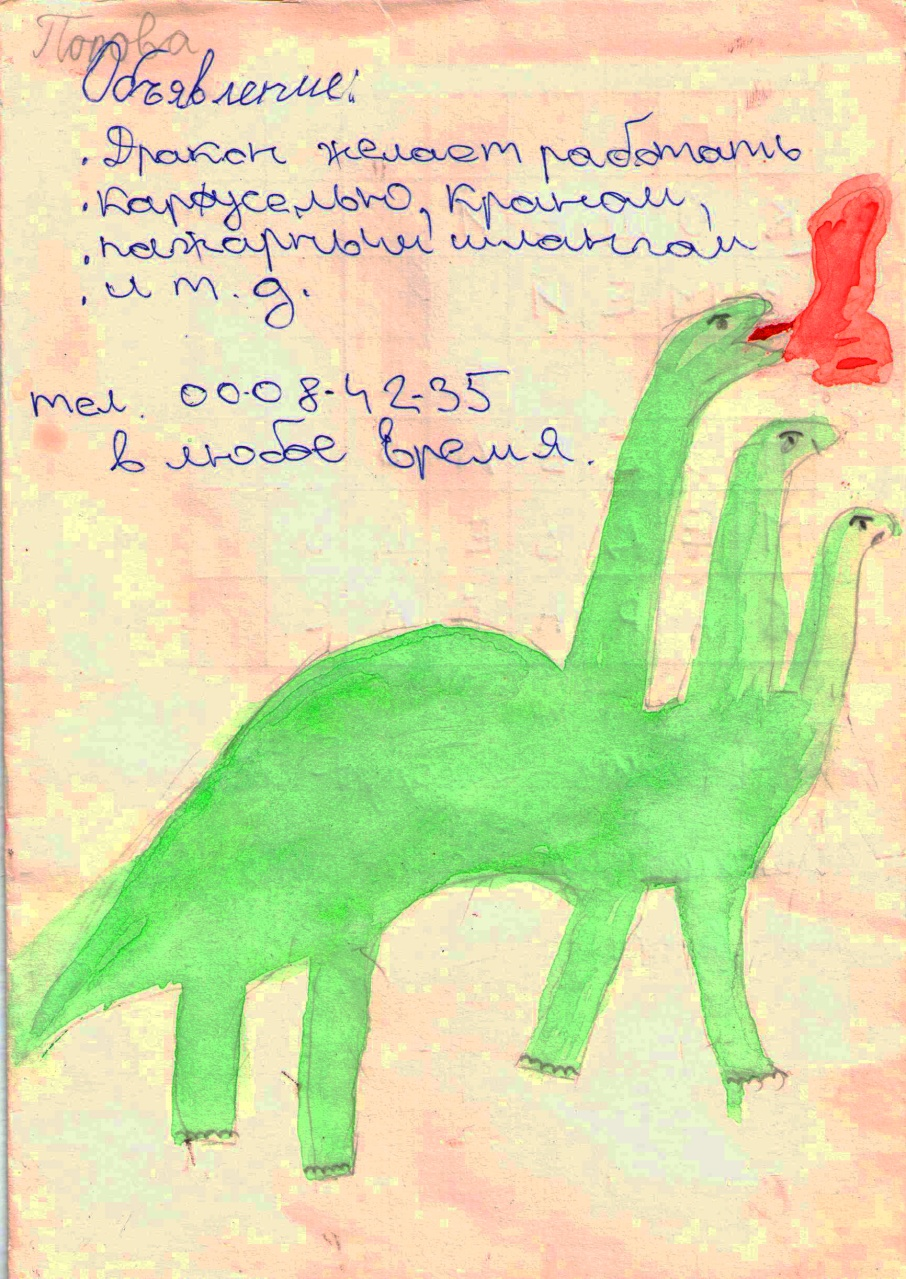 Попова
Объявление:
.Дракон желает работать
.каруселью, краном,
.пажарным шлангом
.и т.д.
тел. 00-08-42-35
в любое время.